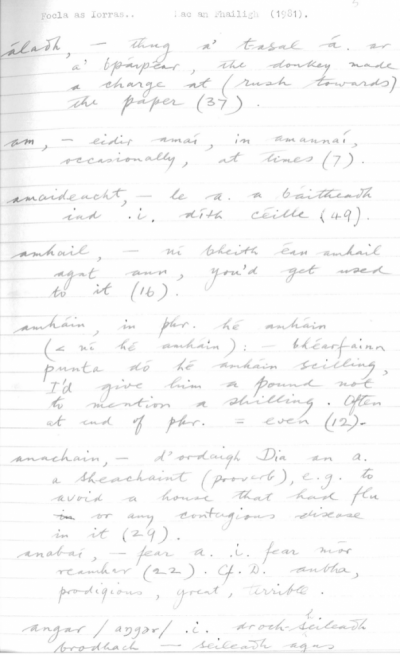 Focla as Iorras.. Mac an Fhailigh (1981).
áladh, — thug a' tasal á. ar
a' bpáipéar, the donkey made
a charge at (rush towards)
the paper (37).
am, — eidir amaí, in amannaí,
occasionally, at times (7).
amaideacht, — le a. a báitheadh
iad .i. díth céille (49).
amhail, — ní bheith éan amhail
agat ann, you'd get used
to it (16).
amháin, in phr. hé amháin
(< ní hé amháin): — bhéarfainn
punta dó hé amháin scilling,
I'd give him a pound not
to mention a shilling. Often
at end of phr. = even (12).
anachain, — d'ordaigh Dia an a.
a sheachaint (proverb), e.g. to
avoid a house that had flu
or any contagious disease
in it (29).
anabaí, — fear a. .i. fear mór
reamhar (22). Cf. D. anbha,
prodigious, great, terrible.
angar /aŋgər/ .i. droch-sheileadh
brodhach — seileadh agus